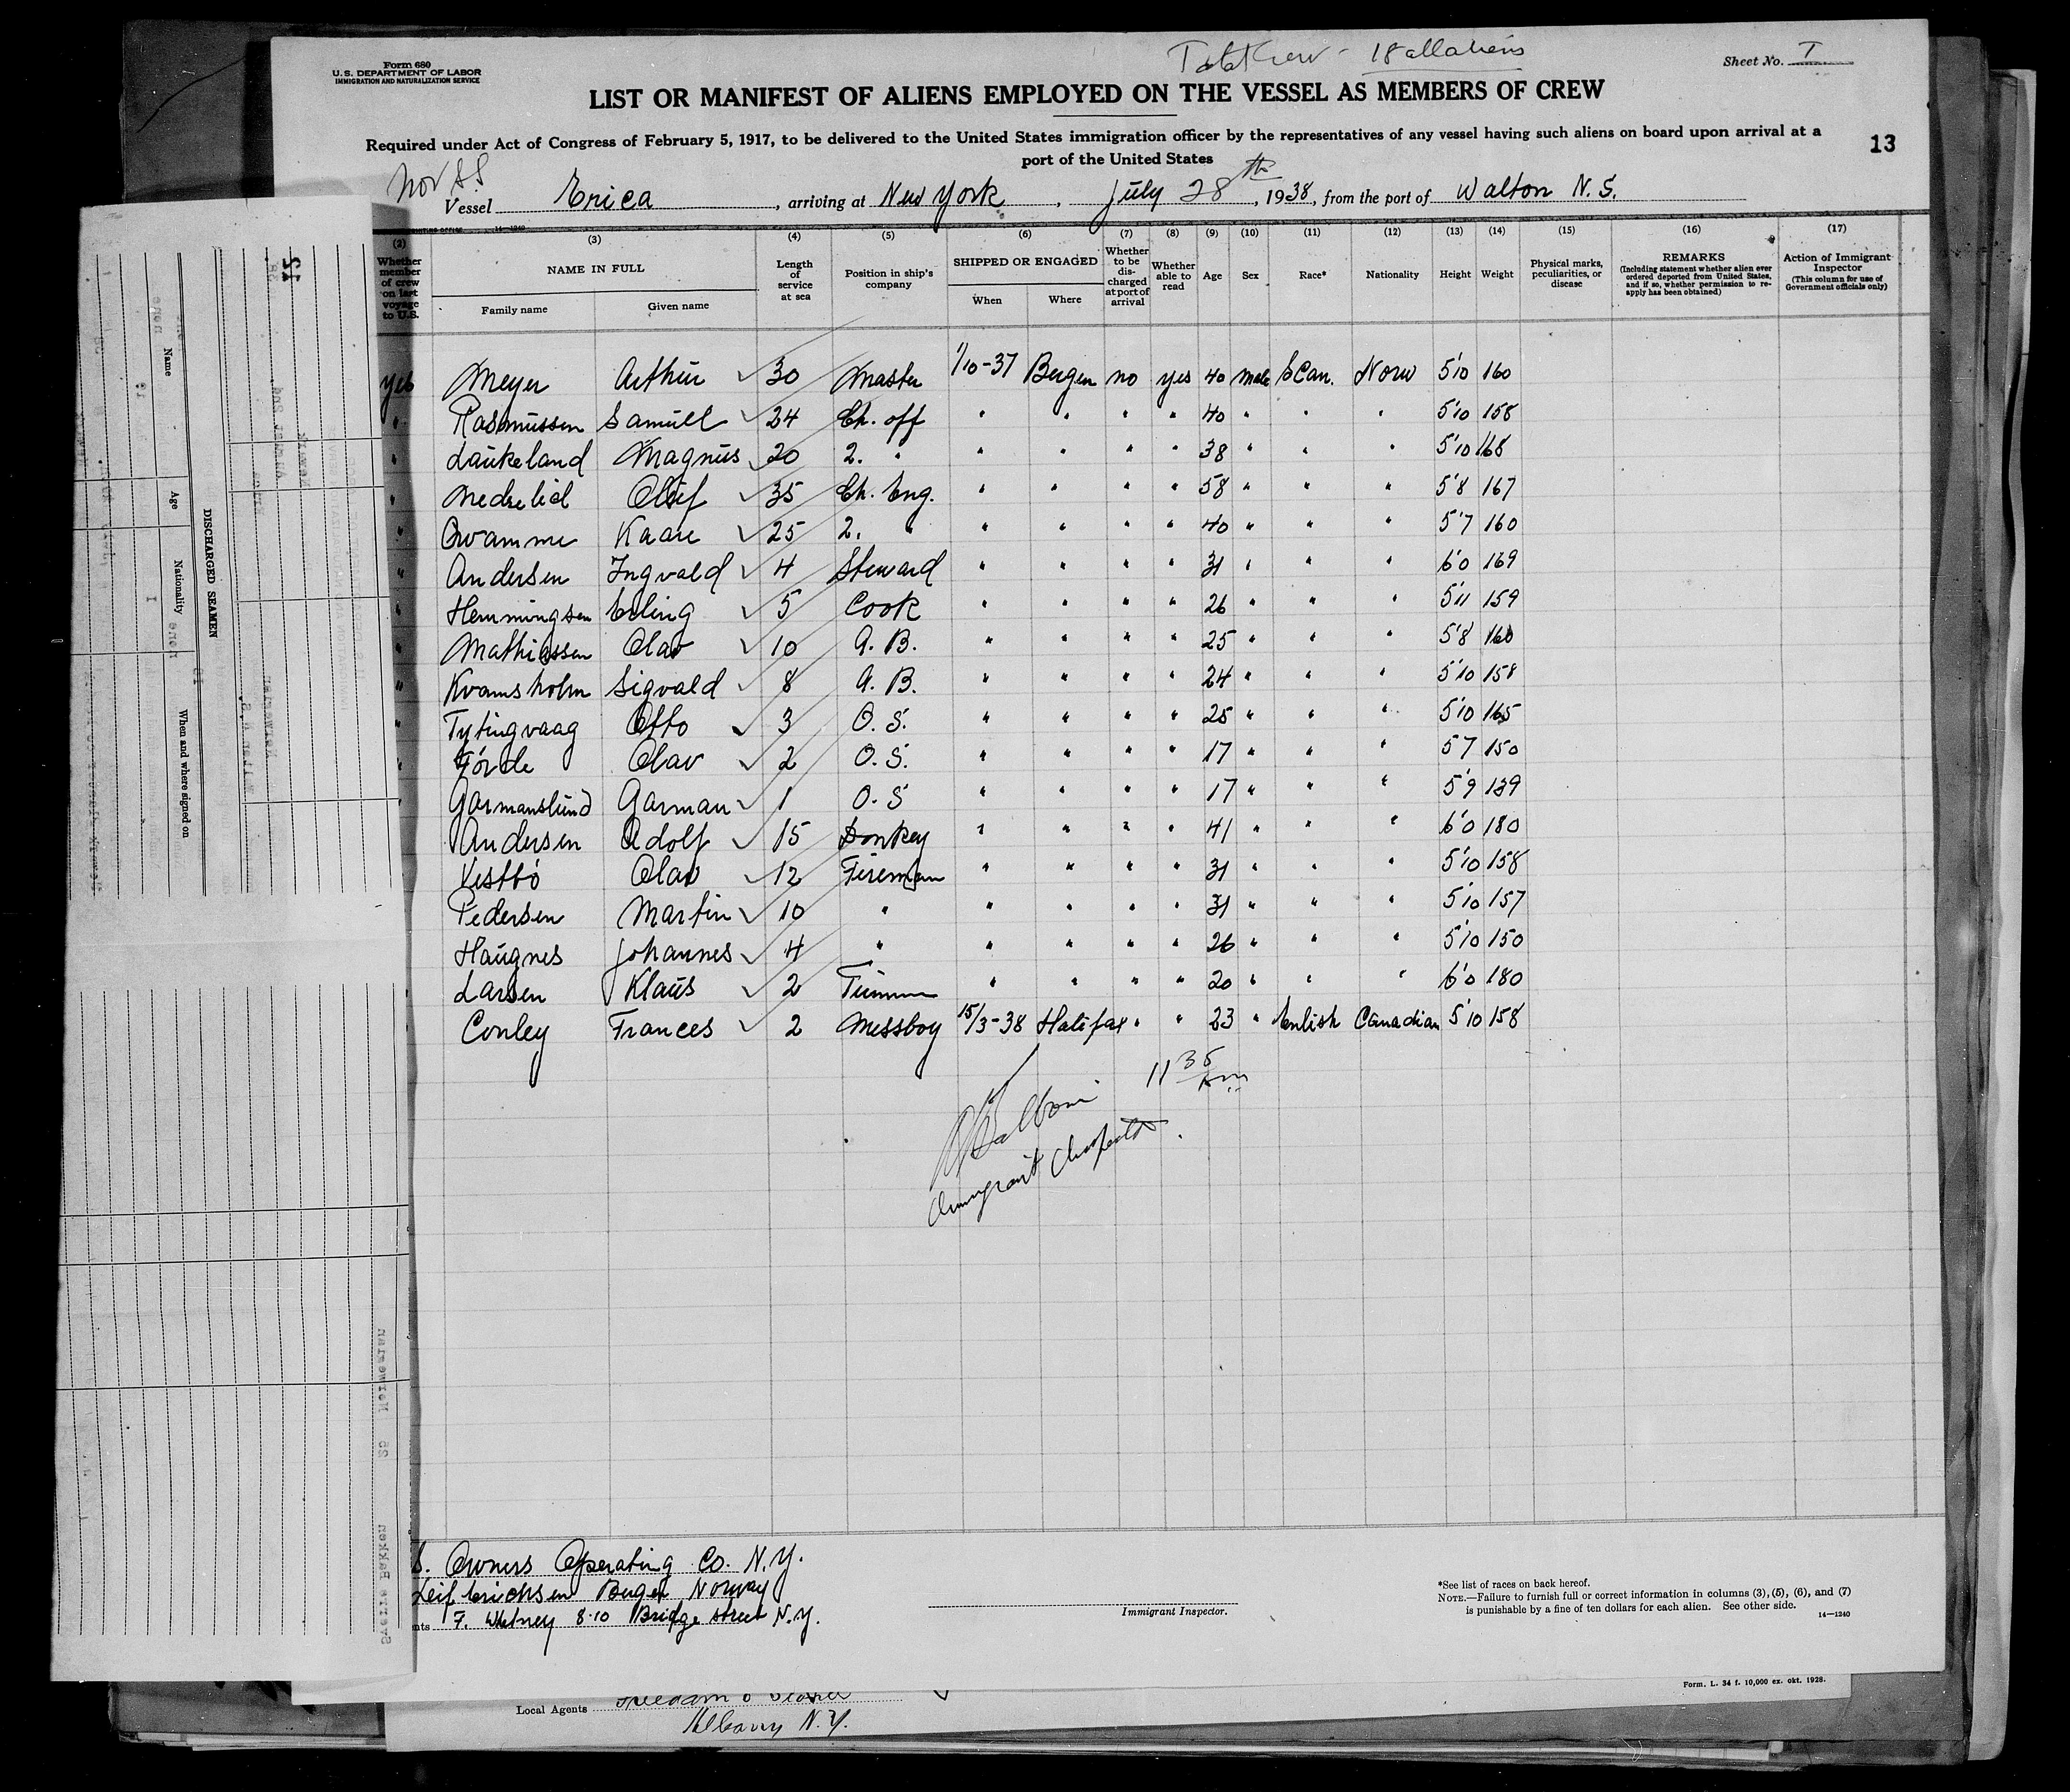 Form 680
U. S. DEPARTMENT OF LABOR
IMMIGRATION AND NATURALIZATION SERVICE
Total Crew - 18 all aliens
Sheet No. I
LIST OR MANIFEST OF ALIENS EMPLOYED ON THE VESSEL AS MEMBERS OF CREW
Required under Act of Congress of February 5, 1917, to be delivered to the United States immigration officer by the representatives of any vessel having such aliens on board upon arrival at a
port of the United States
13
Nor SS
Vessel Erica, arriving at New York, July 28th, 1938, from the port of Walton N. S.
(2) (3) (4) (5) (6) (7) (8) (9) (10) (11) (12) (13) (14) (15) (16) (17)
Whether member of crew on last voyage to U.S.
NAME IN FULL
Family name Given name
Length of service at sea
Position in ship's company
SHIPPED OR ENGAGED
When Where
Whether to be discharged at port of arrival
Whether able to read
Age Sex Race* Nationality Height Weight
Physical marks, peculiarities, or disease
REMARKS
(Including statement whether alien ever ordered deported from United States, and if so, whether permission to reapply has been obtained)
Action of Immigrant Inspector
(This column for use of Government officials only)
yes Meyer Arthur ✓ 30 Master 1/10-37 Bergen no yes 40 male Scan. Norw 5'10 160
" Rasmussen Samuel ✓ 24 Ch. off " " " " 40 " " " 5'10 158
" Laukeland Magnus ✓ 20 2. " " " " " 38 " " " 5'10 168
" Olaf ✓ 35 Ch. Eng. " " " " 58 " " " 5'8 167
" Kaare ✓ 25 2. " " " " " 40 " " " 5'7 160
" Andersen Ingvald ✓ 4 Steward " " " " 31 " " " 6'0 169
" Hemmingsen Erling ✓ 5 Cook " " " " 26 " " " 5'11 159
" Mathiassen Olav ✓ 10 A. B. " " " " 25 " " " 5'8 160
" Kvamsholm Sigvald ✓ 8 A. B. " " " " 24 " " " 5'10 158
" Tytingvaag Otto ✓ 3 O. S. " " " " 25 " " " 5'10 165
" Förde Olav ✓ 2 O. S. " " " " 17 " " " 5'7 150
" Garmanslund Garman ✓ 1 O. S " " " " 17 " " " 5'9 139
Andersen Adolf ✓ 15 Donkey " " " " 41 " " " 6'0 180
Vestbö Olav ✓ 12 Fireman " " " " 31 " " " 5'10 158
Pedersen Martin ✓ 10 " " " " " 31 " " " 5'10 157
Haugnes Johannes ✓ 4 " " " " " 26 " " " 5'10 150
Larsen Klaus ✓ 2 " " " " 20 " " " 6'0 180
Conley Frances ✓ 2 Messboy 15/3-38 Halifax " " 23 " Enlish Canadian 5'10 158
11 35
Immigrant Inspector.
S. Owners Operating Co. N. Y.
Leif Erichsen Bergen Norway
nts F. Whitney 8-10 Bridge Street N. Y.
Immigrant Inspector.
*See list of races on back hereof.
NOTE.—Failure to furnish full or correct information in columns (3), (5), (6), and (7)
is punishable by a fine of ten dollars for each alien. See other side.
14—1240
Form. L. 34 f. 10,000 ex. okt. 1928.
Local Agents
Albany N. Y.
DISCHARGED SEAMEN
Name Age Nationality When and where signed on
Sverre Bakken 25 Norwegian